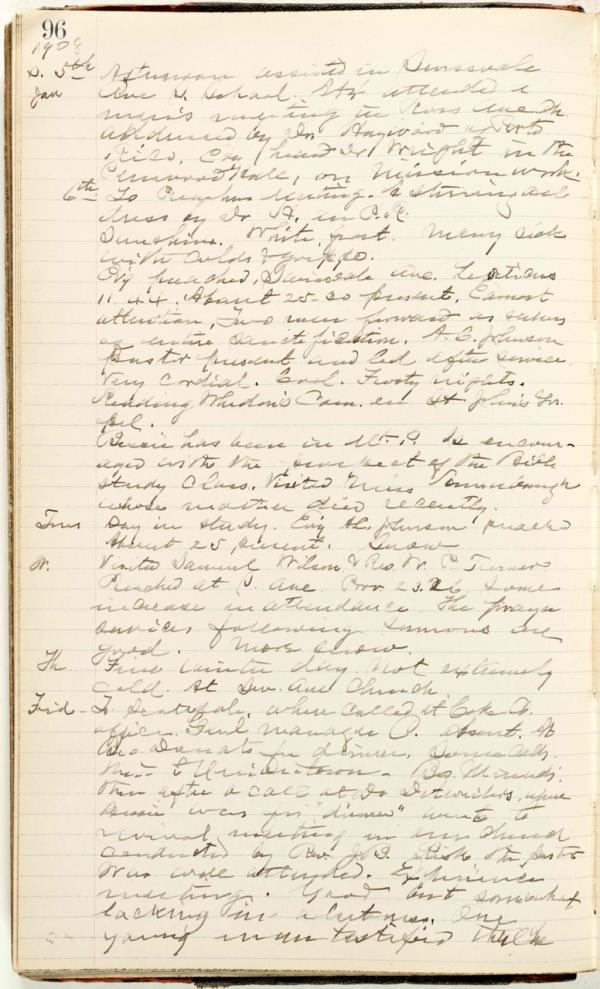 96
1908
S. 5th Afternoon assisted in Swissvale
Jan Ave S. School. attended a
men's meeting in Ross Ave Ch.
addressed by Dr. Hayward of Porto
Rico. Evg heard Dr Wright in the
on Mission work.
6th To Preachers Meeting. A stirring ad-
dress by Dr. H. in P.R.
Sunshine. White frost. Many sick
with colds & grippe.
Evg preached, Swissvale Ave. Leviticus
11.44. About 25-30 present. Earnest
attention. Two men forward as seekers
of entire sanctification. A. C. Johnson
Pastor present and led after service.
Very cordial. Cool. Frosty nights.
Reading Whedon's Com. on St John's Gos-
pel.
has been in Mt. P. Is encour-
aged with the prospect of the Bible
Study Class. Visited Miss
whose mother died recently.
Tues Day in study. Evg Johnson preached
About 25 present. Snow
W. Visited Samuel Wilson & Rev. W. P. Turner
Preached at S. Ave. Prov. 23.26 Some
increase in attendance. The prayer
services following sermons are
good. More snow.
Th Fine winter day not extremely
cold. At Sw. Ave Church.
Frid - To Scottdale, where called at Coke Co.
office. Genl manager absent. At
for dinner. Some calls
to Uniontown -
then after a call at Dr Detwilers, where
was for "dinner" went to
revival meeting in our church
conducted by Rev. the pastor
Was well attended. Experience
meeting. Good but somewhat
lacking in One
young man testified